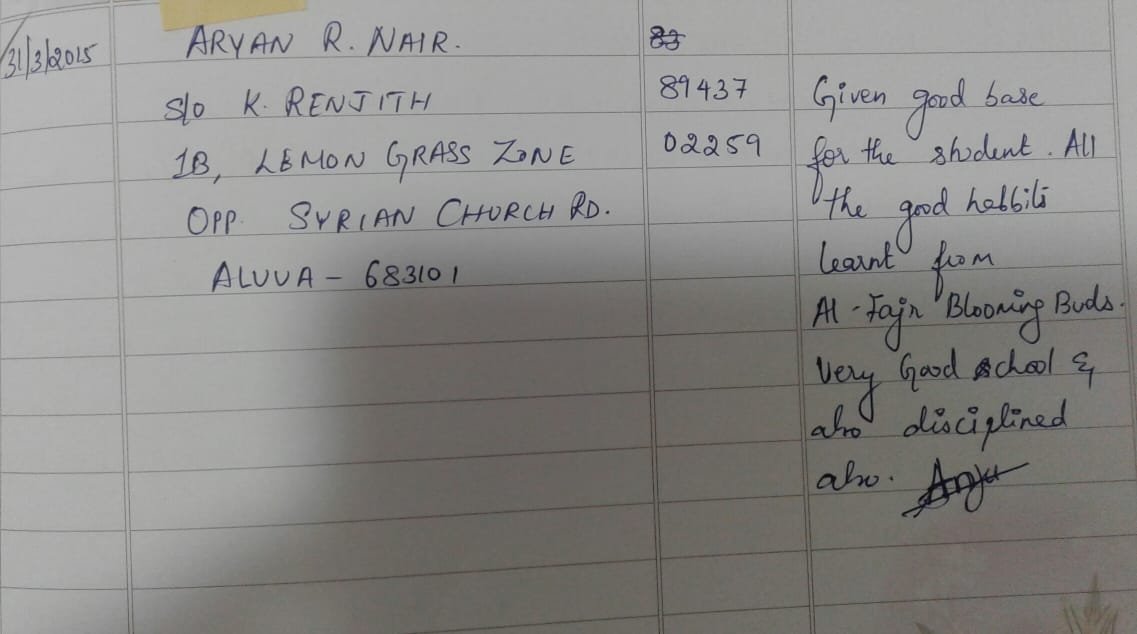 31/3/2015
ARYAN R. NAIR.
S/o K. RENJITH
1B, LEMON GRASS ZONE
OPP. SYRIAN CHURCH RD.
ALUVA - 683101
83
89437
02259
Given good base
for the student. All
the good habbits
learnt from
Al-Fajr Blooming Buds.
Very Good school &
also disciplined
also. Anju